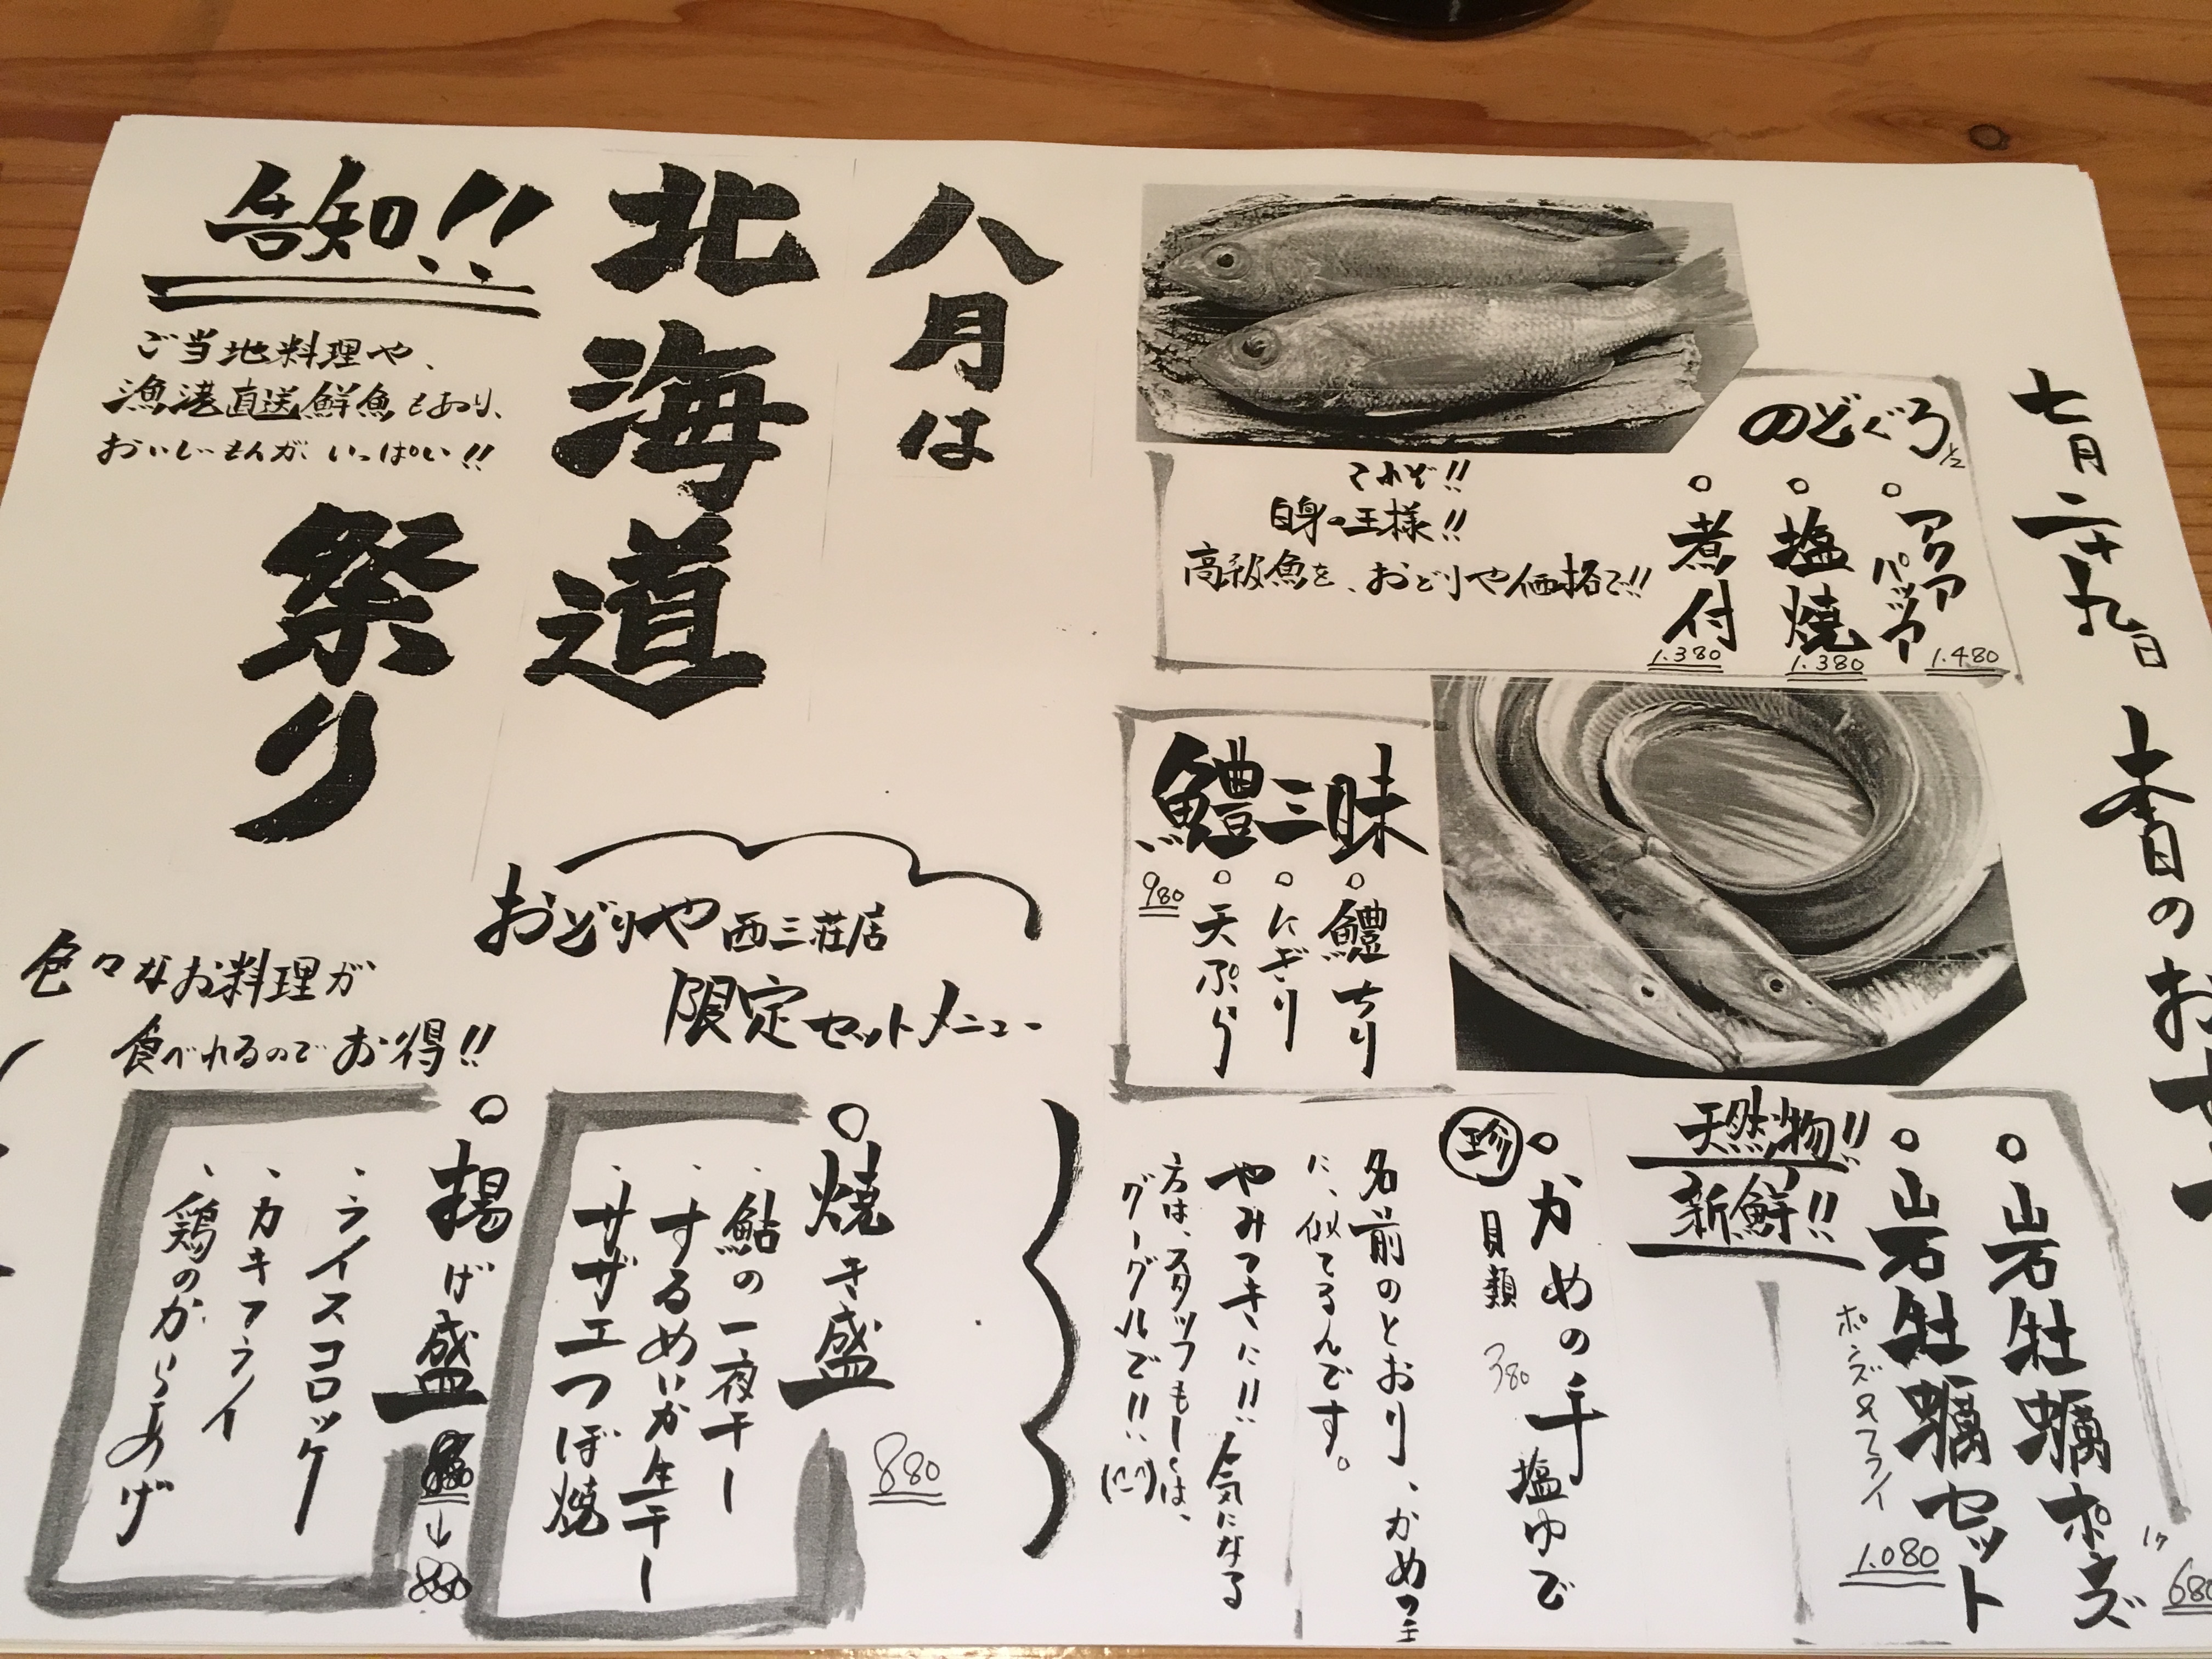 七月二十九日 本日のおすすめ
のどぐろ 1/2
○アクアパッツァ 1.480
○塩焼 1.380
○煮付 1.380
これぞ!!
白身の王様!!
高級魚を、おどりや価格で!!
鱧三昧
○鱧ちり
○にぎり
○天ぷら
980
○山岩牡蠣ポンズ
1ケ 680
○山岩牡蠣セット
ポンズ&フライ
1.080
天然物!!
新鮮!!
珍 ○かめの手 塩ゆで
貝類 380
名前のとおり、かめの手
に、似てるんです。
やみつきに!! 気になる
方は、スタッフもしくは、
グーグルで!!
八月は
北海道
祭り
告知!!
ご当地料理や、
漁港直送鮮魚もあり、
おいしいもんが、いっぱい!!
おどりや西三荘店
限定セットメニュー
色々なお料理が
食べれるのでお得!!
○焼き盛
880
、鮎の一夜干し
、するめいか生干し
、サザエつぼ焼
○揚げ盛
、ライスコロッケ
、カキフライ
、鶏のからあげ